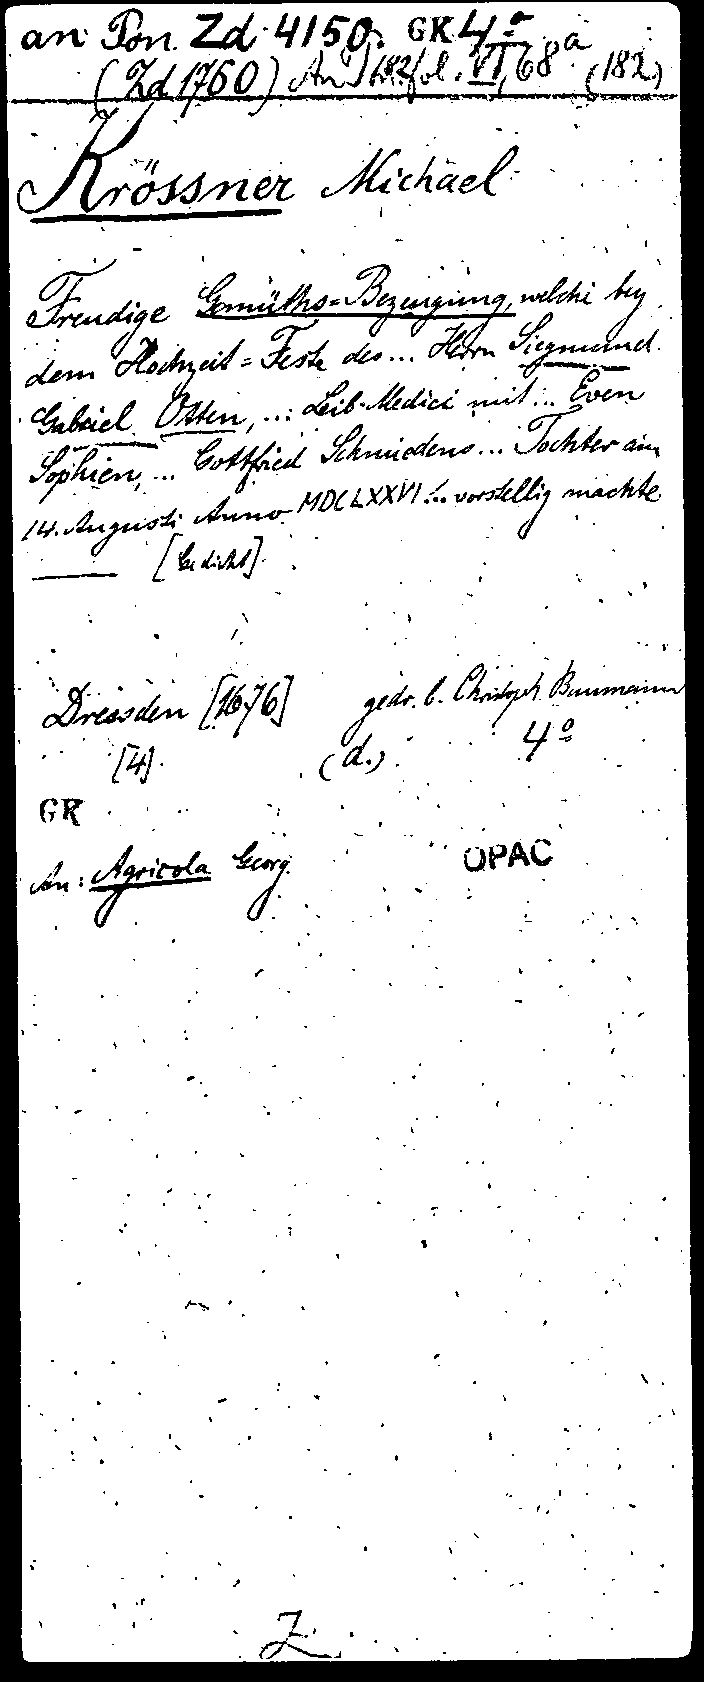 an Pon Zd 4150. GK 4º
(Zd 1760) An fol. VI, 68ª (182)
Krössner Michael
Freudige Gemüths=Bezeugung, welche bey
dem Hochzeit=Feste des... Herrn Siegmund
Gabriel Osten, ... Leib-Medici mit... Even
Sophien, ... Gottfried Schmiedens... Tochter am
14. Augusti Anno MDCLXXVI... vorstellig machte
[Gedicht].
Dresden [1676] gedr. b. Christoph Baumann
[4]. (d.) 4º
GK
An: Agricola Georg. OPAC
Z